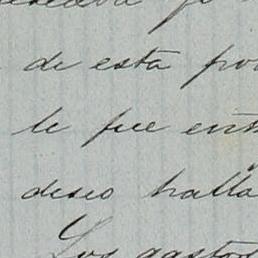 de esta pro
le fue ent
deseo halla
Los gastos